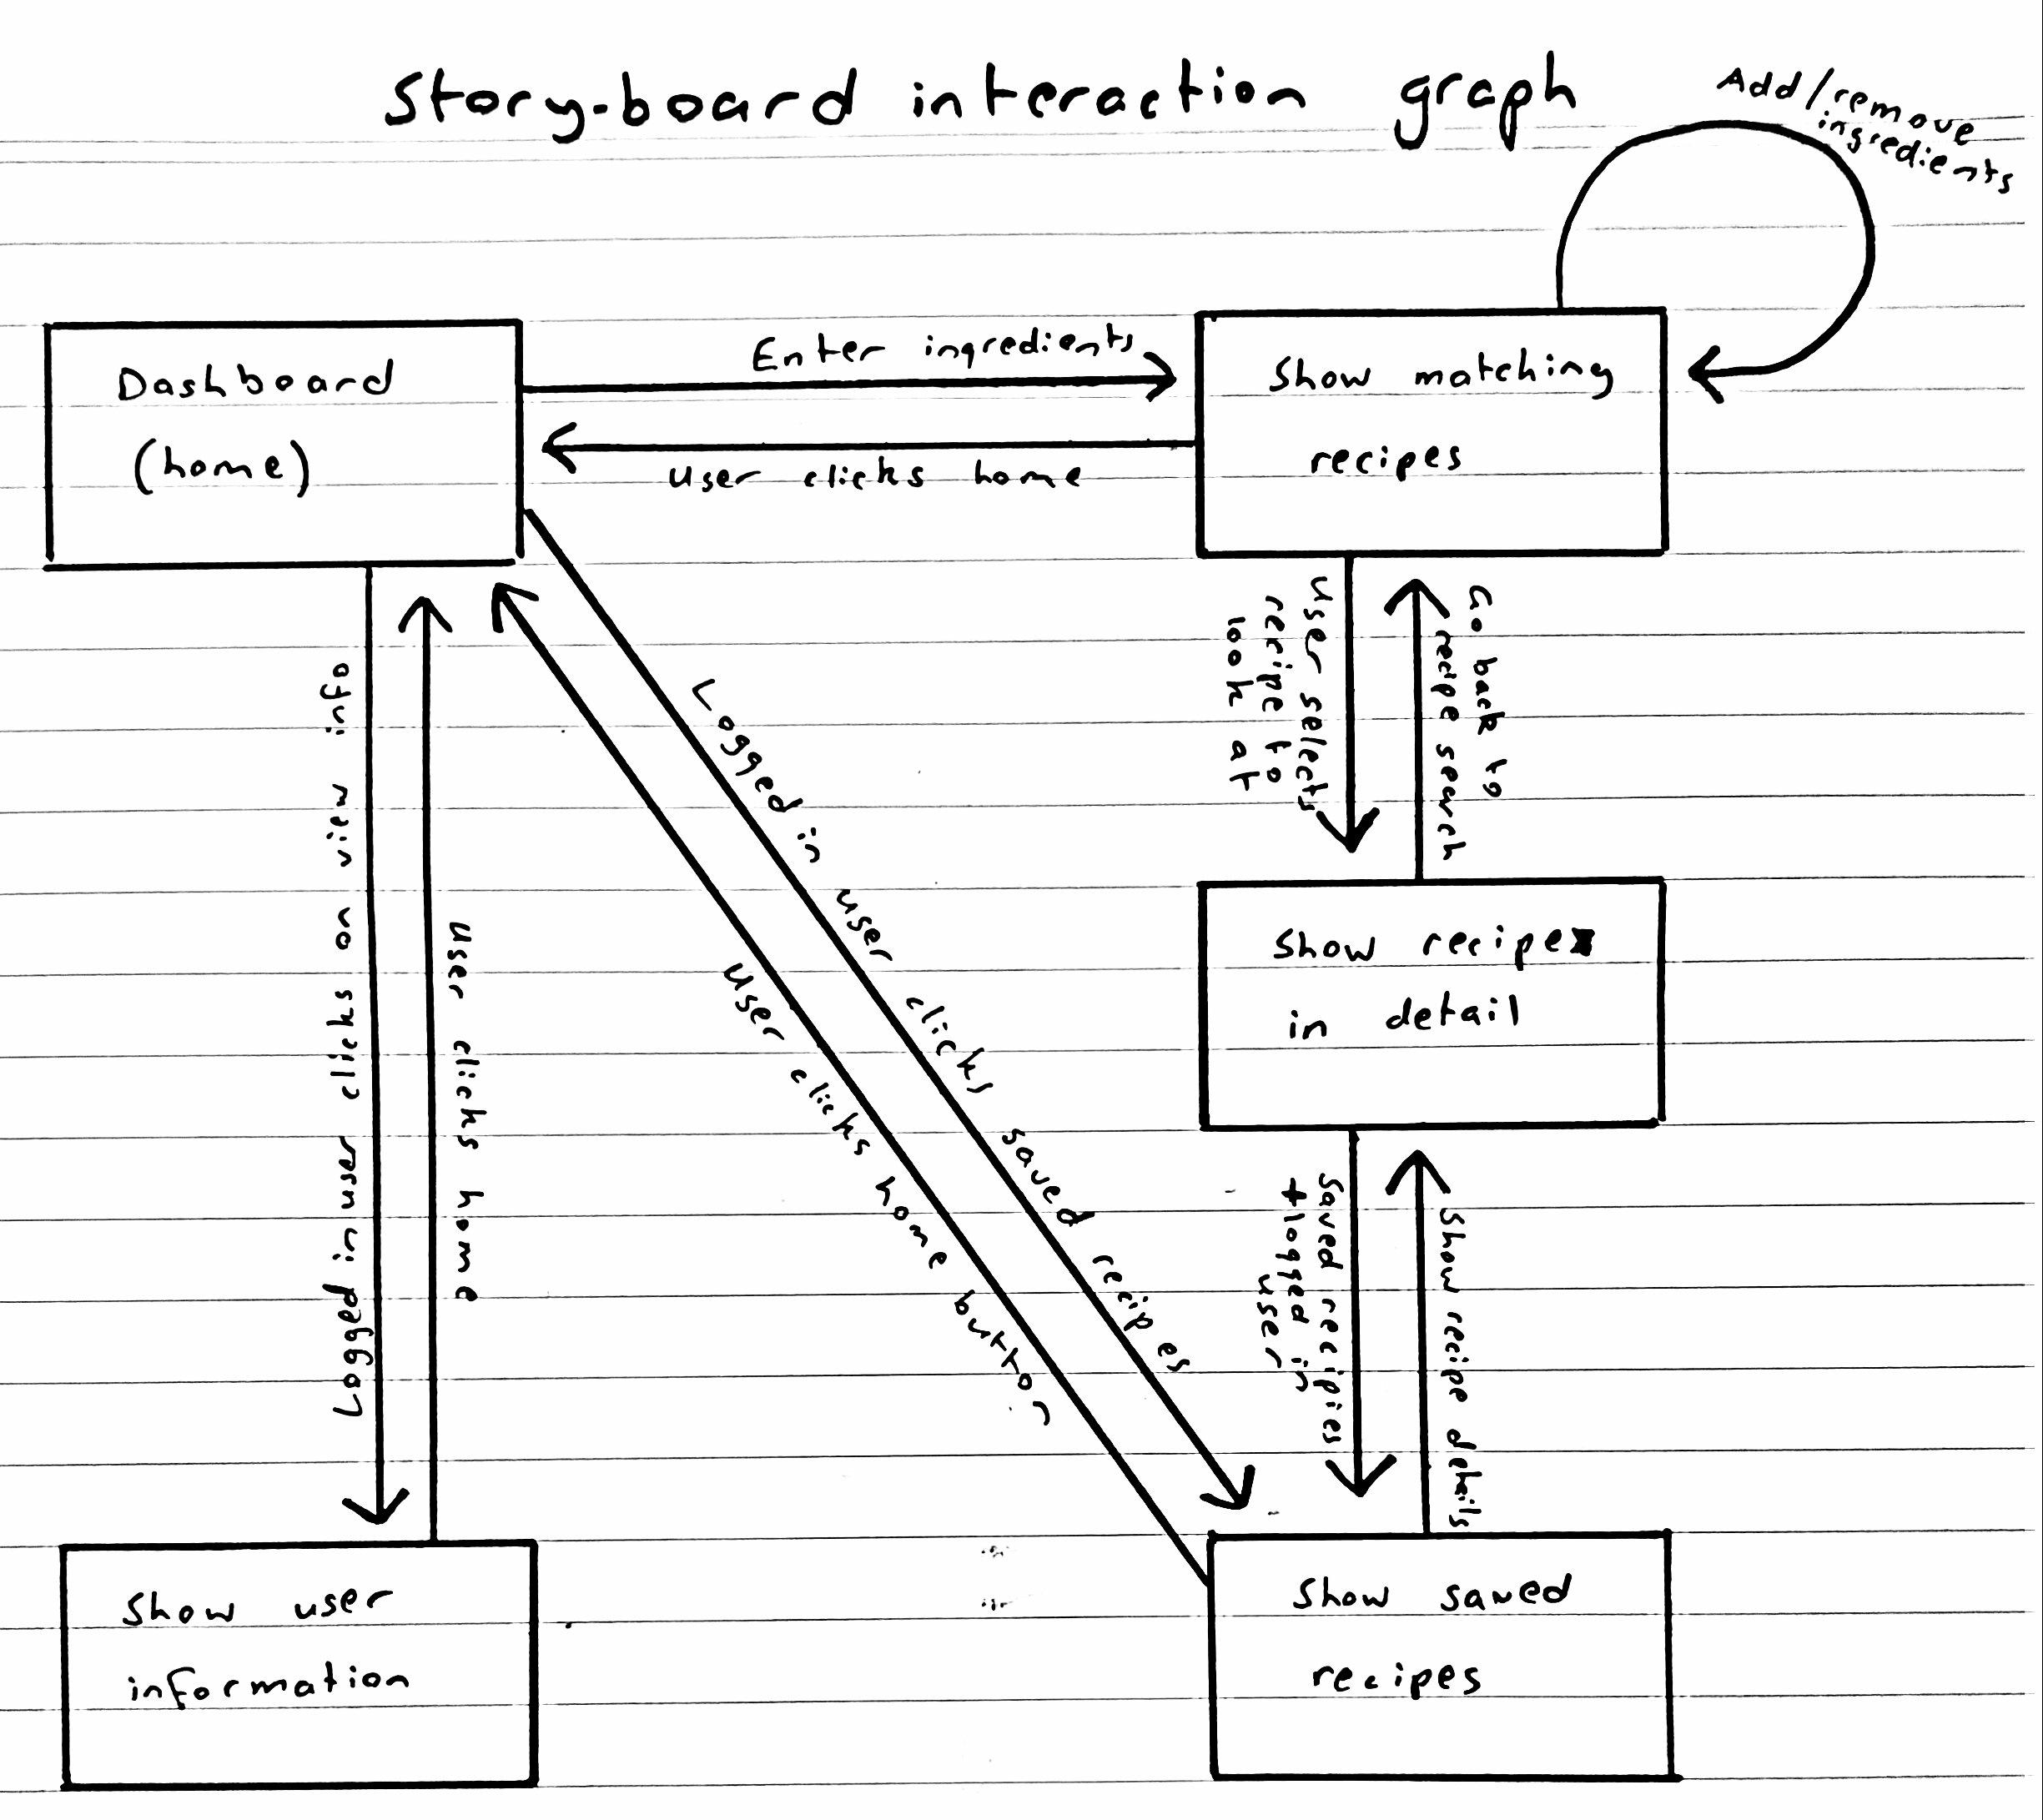 Story-board interaction graph
Add/remove
ingredients
Dashboard
(home)
Enter ingredients
user clicks home
Show matching
recipes
user selects
recipe to
look at
Go back to
recipe search
Logged in user clicks on view info
user clicks home
Logged in user clicks saved recipes
user clicks home button
Show recipe
in detail
Saved recipies
+logged in
user
Show recipe details
Show user
information
Show saved
recipes